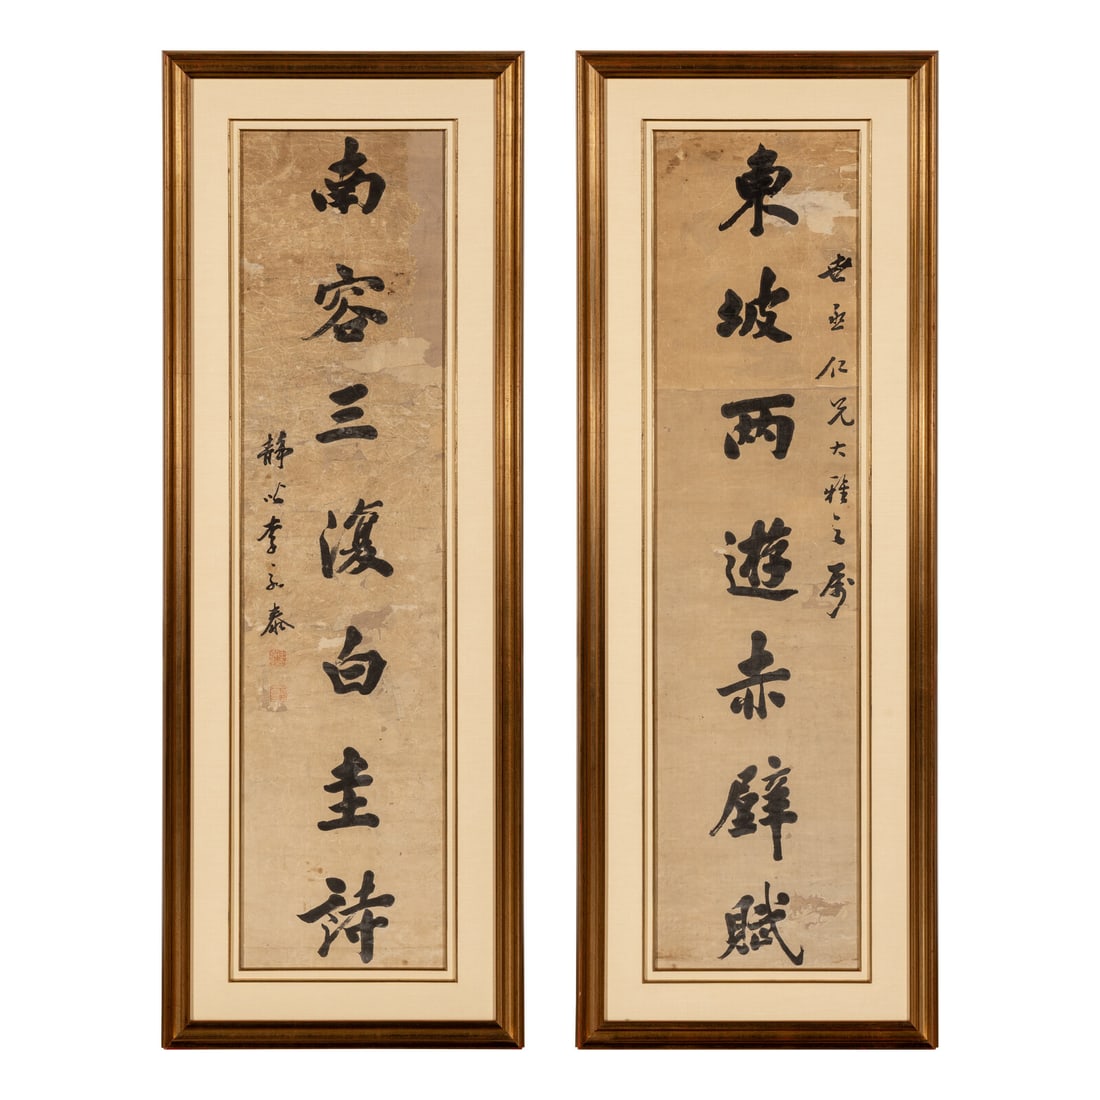 世丞仁兄大雅之属
東坡两遊赤壁賦
南容三復白圭詩
靜李永泰